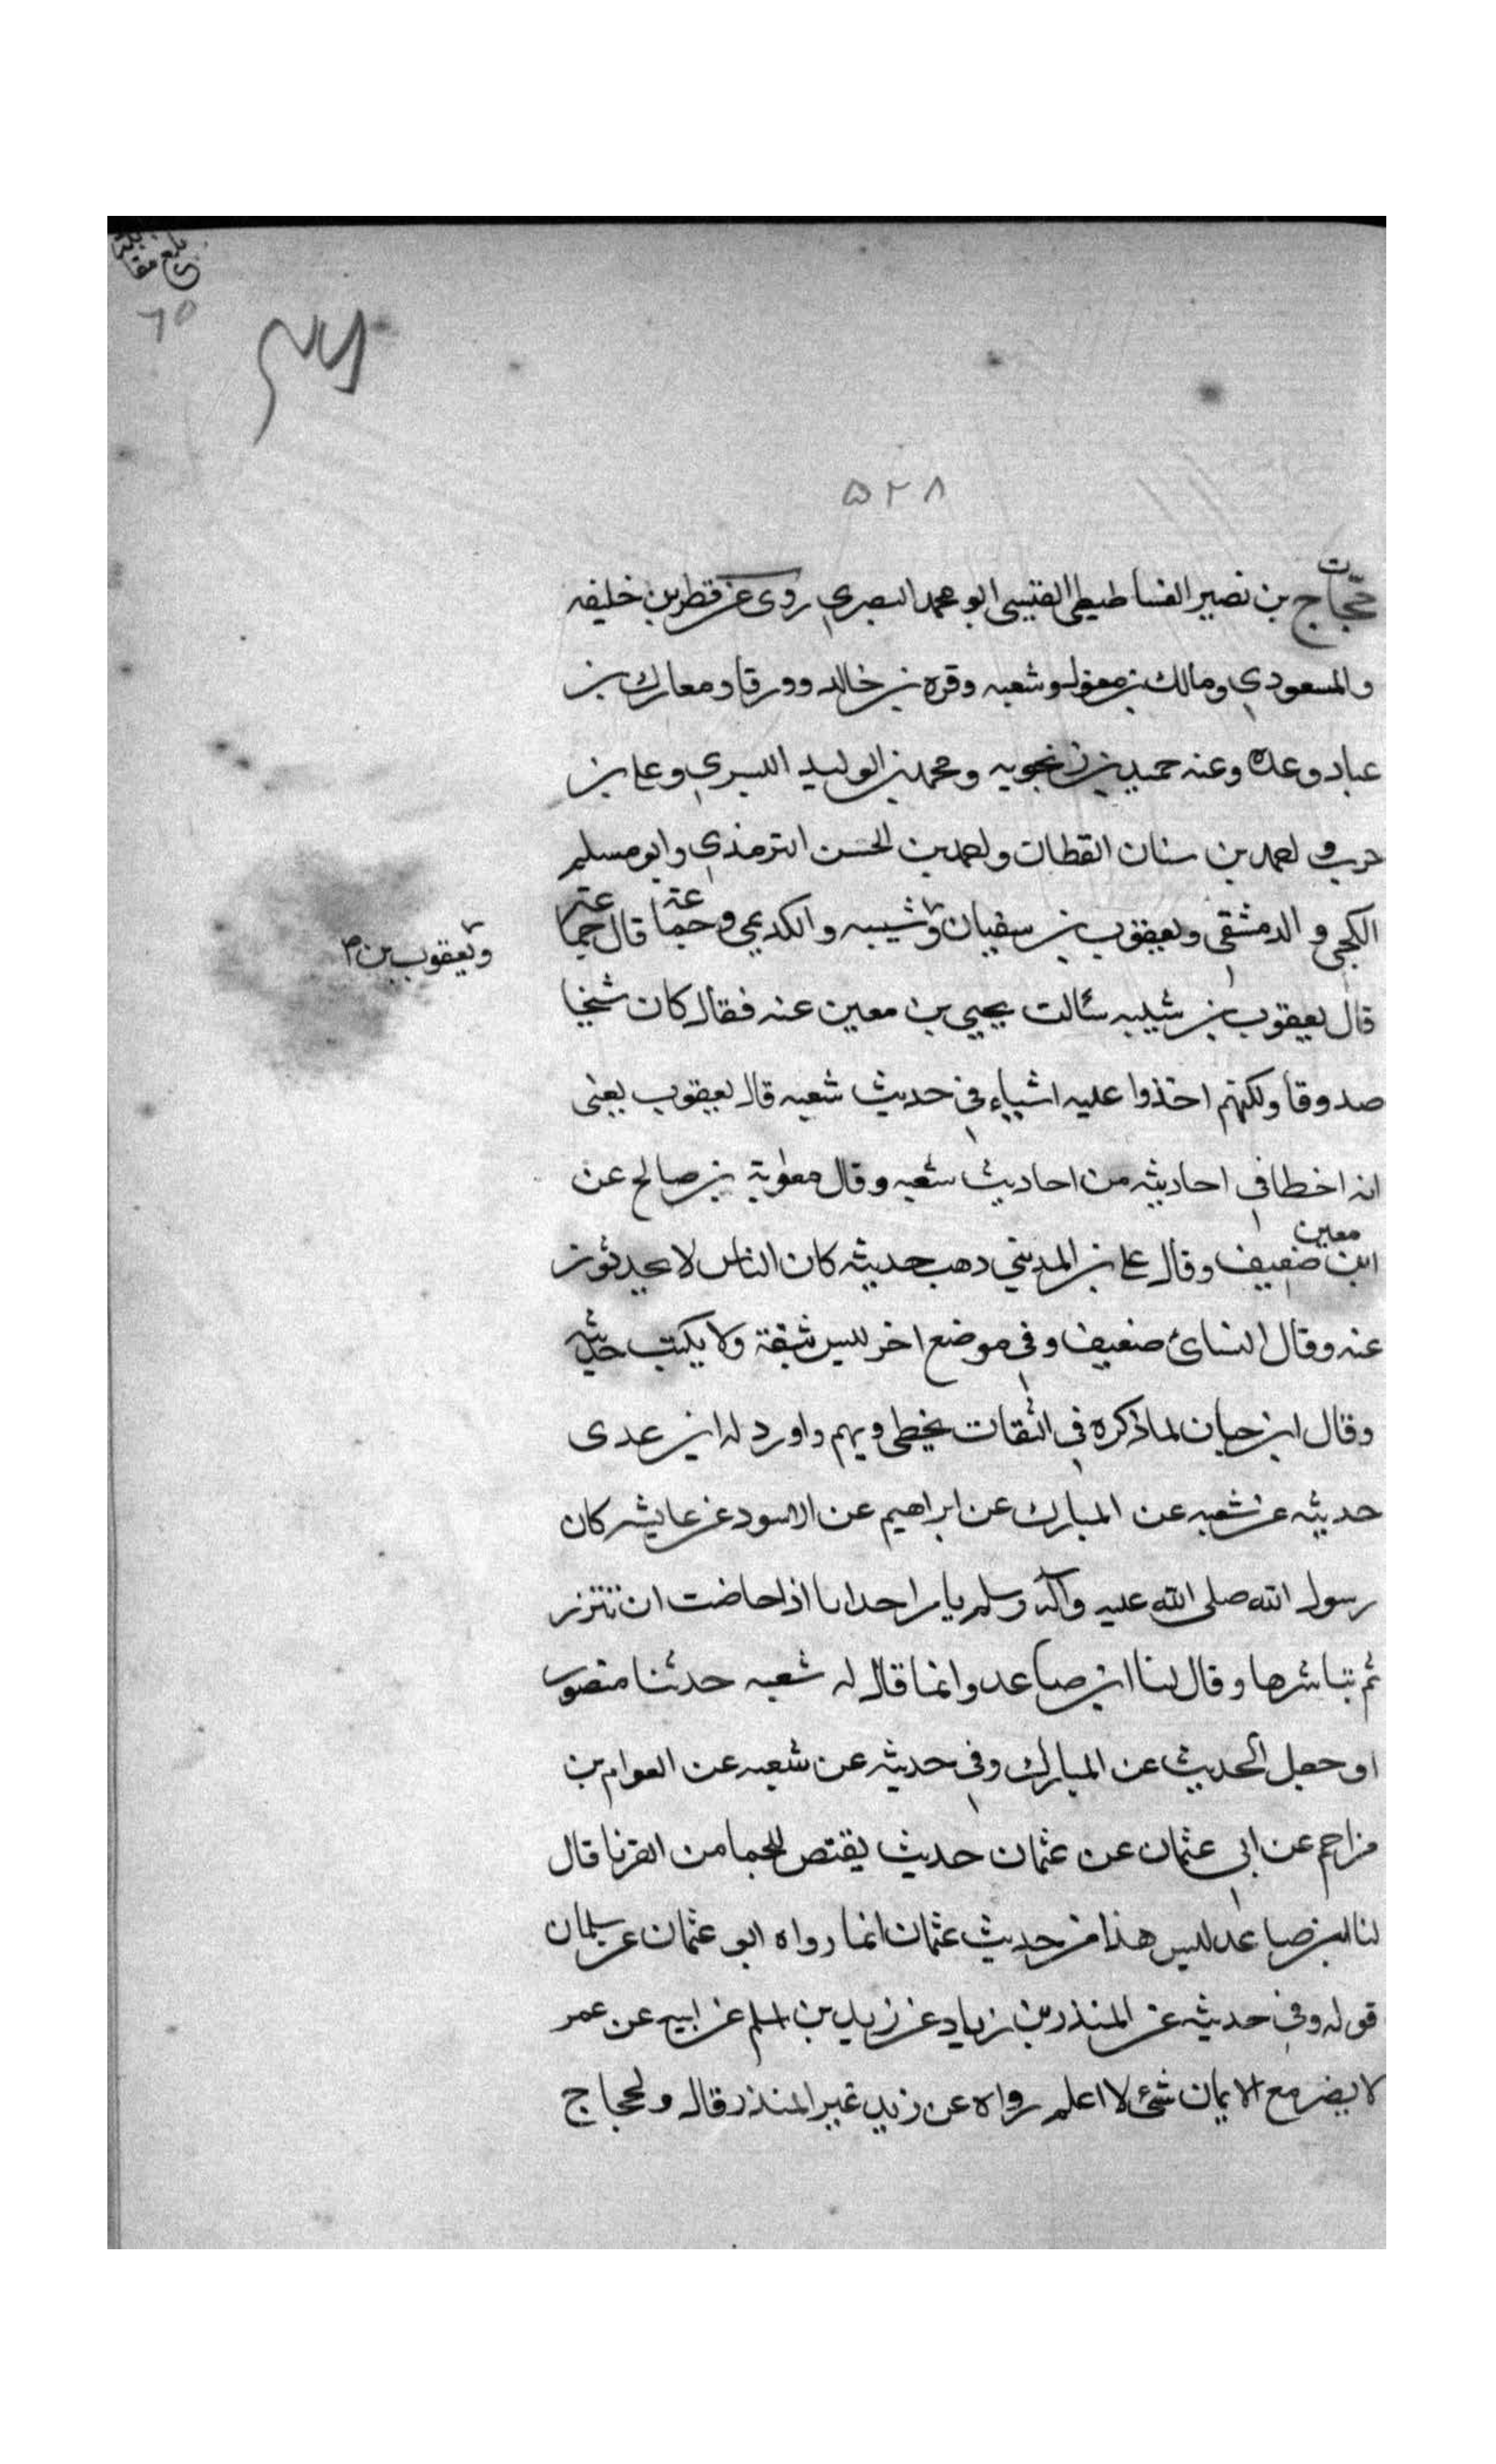 ٦٥
٥٢٨
ت
حجاج بن نصير الفساطيطى القيسى ابو محمد البصري روى عن قطر بن خليفه
والمسعودي ومالك بن مغول وشعبه وقره بن خالد وورقا ومعارك بن
عباد وعده وعنه حميد بن زنجويه ومحمد بن الوليد البسري وعلى بن
حرب و احمد بن سنان القطان واحمد بن الحسن الترمذي وابو مسلم
الكجى و الدمشقى ويعقوب بن سفيان و شيبه والكديمى و جماعته قال جماعته
ويعقوب بن م
قال يعقوب بن شيبه سئالت يحيى بن معين عنه فقال كان شيخا
صدوقا ولكنهم اخذوا عليه اشياء في حديث شعبه قال يعقوب يعنى
انه اخطا في احاديثه من احاديث شعبه وقال معاوية بن صالح عن
ابن معين ضعيف وقال على بن المديني ذهب حديثه كان الناس لا يحدثون
عنه وقال النسائ ضعيف وفي موضع اخر ليس بثقة ولا يكتب حديثه
وقال ابن حبان لما ذكره في الثقات يخطى ويهم واورد له ابن عدى
حديثه عن شعبه عن المبارك عن ابراهيم عن الاسود عن عايشه كان
رسول الله صلى الله عليه وآله وسلم يامر احدانا اذا حاضت ان تتزر
ثم تباشرها وقال لنا ابن صاعد وانما قال له شعبه حدثنا منصور
او جعل الحديث عن المبارك وفي حديثه عن شعبه عن العوام بن
مزاحم عن ابي عثمان عن عثمان حديث يقتص للجما من القرنا قال
لنا ابن صاعد ليس هذا من حديث عثمان انما رواه ابو عثمان عن سلمان
قوله وفي حديثه عن المنذر بن زياد عن زيد بن اسلم عن ابيه عن عمر
لا يضر مع الايمان شئ لا اعلم رواه عن زيد غير المنذر قال ولحجاج